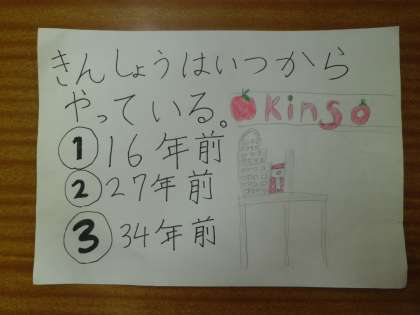 きんしょうはいつから
やっている。
Kinso
① 16年前
② 27年前
③ 34年前